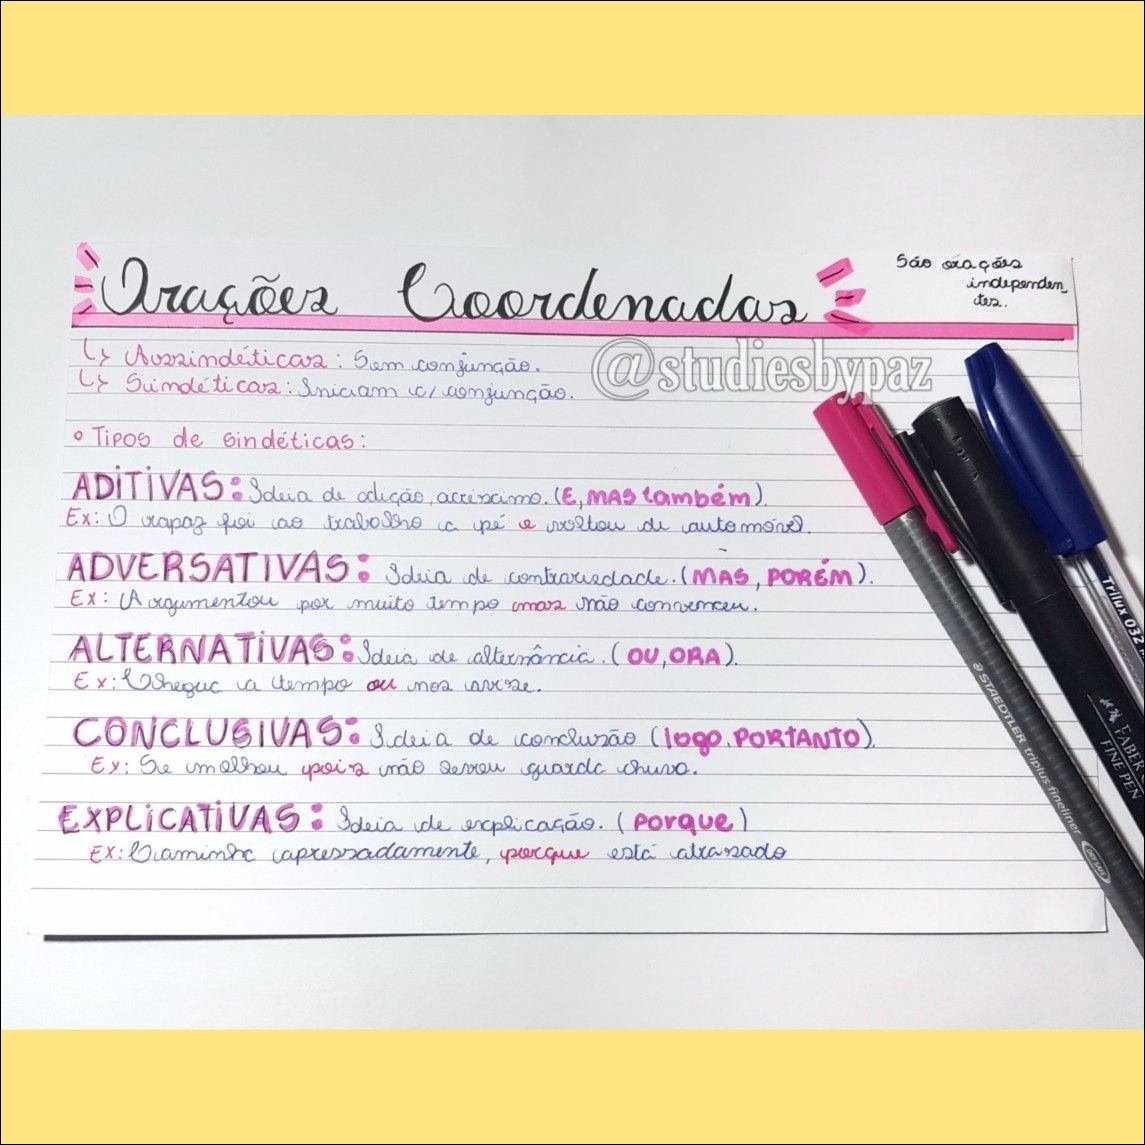 Orações Coordenadas
São orações
independen
tes.
↳ Assindéticas: Sem conjunção.
↳ Sindéticas: Iniciam c/ conjunção.
@studiesbypaz
• Tipos de sindéticas:
ADITIVAS: Ideia de adição, acréscimo. (E, MAS também).
Ex: O rapaz foi ao trabalho a pé e voltou de automóvel.
ADVERSATIVAS: Ideia de contrariedade. (MAS, PORÉM).
Ex: Argumentou por muito tempo mas não convenceu.
ALTERNATIVAS: Ideia de alternância. (OU, ORA).
Ex: Chegue a tempo ou nos avise.
CONCLUSIVAS: Ideia de conclusão (logo, PORTANTO).
Ex: Se molhou pois não levou guarda chuva.
EXPLICATIVAS: Ideia de explicação. (Porque)
Ex: Caminha apressadamente, porque está atrasado
Trilux 032
STAEDTLER triplus fineliner
DRY SAFE
FABER
FINE PEN